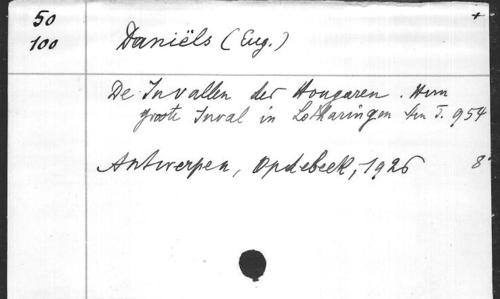 50 +
100 Daniëls (Eug.)
De Invallen der Hongaren. Hun
groote Inval in Lotharingen ten J. 954
Antwerpen, Opdebeek, 1926 8°